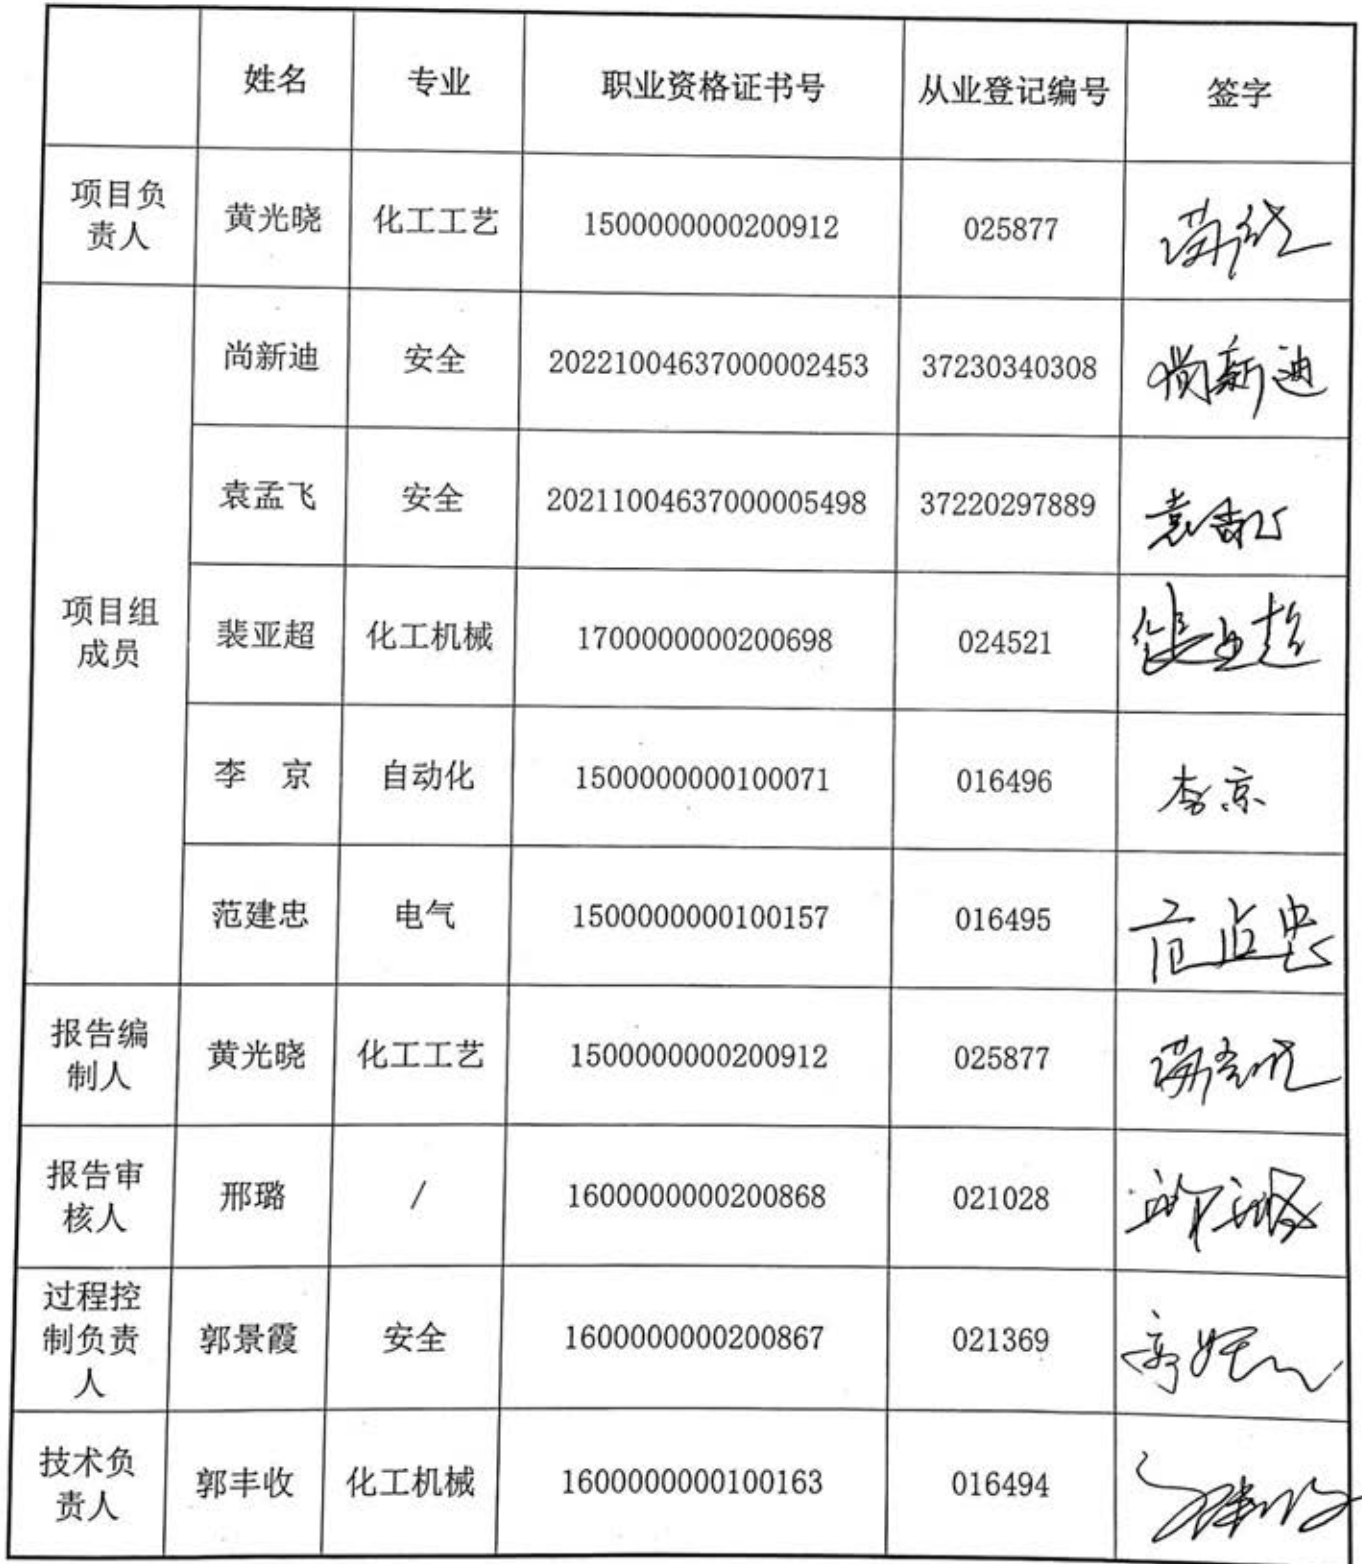 姓名 专业 职业资格证书号 从业登记编号 签字
项目负
责人
黄光晓 化工工艺 1500000000200912 025877
项目组
成员
尚新迪 安全 20221004637000002453 37230340308 尚新迪
袁孟飞 安全 20211004637000005498 37220297889
裴亚超 化工机械 1700000000200698 024521
李 京 自动化 1500000000100071 016496 李京
范建忠 电气 1500000000100157 016495 范建忠
报告编
制人
黄光晓 化工工艺 1500000000200912 025877
报告审
核人
邢璐 / 1600000000200868 021028
过程控
制负责
人
郭景霞 安全 1600000000200867 021369
技术负
责人
郭丰收 化工机械 1600000000100163 016494